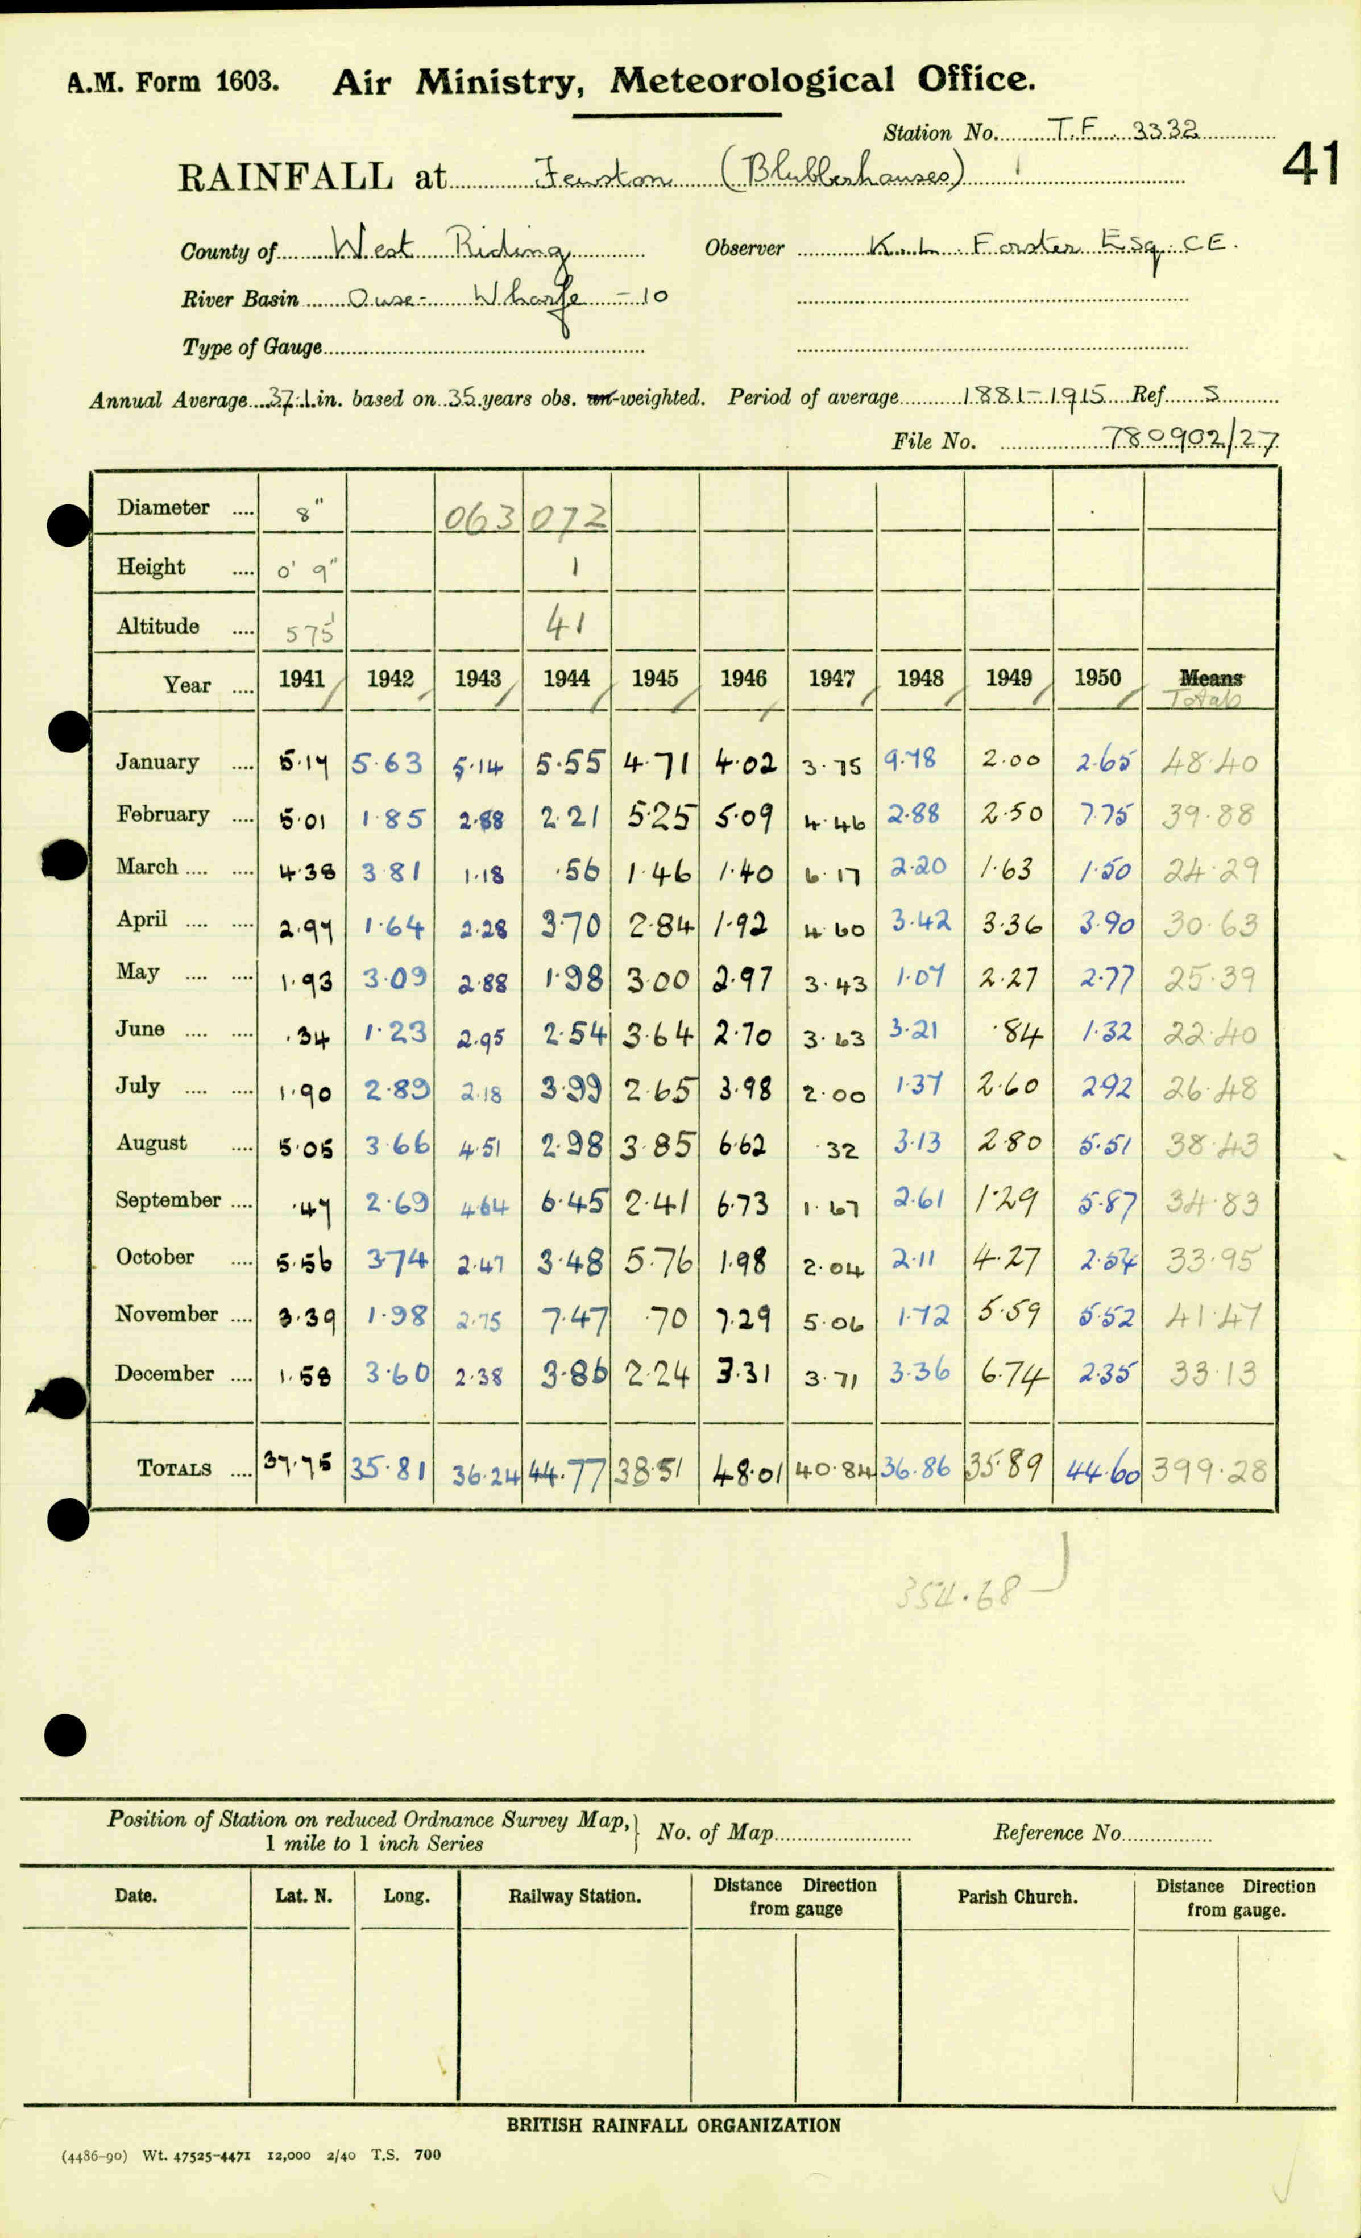 A.M. Form 1603. Air Ministry, Meteorological Office.
Station No. T.F. 3332
41
RAINFALL at Fewston (Blubberhouses)
County of West Riding Observer K. L. Forster Esq. C.E.
River Basin Ouse - Wharfe - 10
Type of Gauge
Annual Average 37.1 in. based on 35 years obs. un-weighted. Period of average 1881-1915 Ref. S
File No. 780902/27
Diameter .... 8" 063 072
Height .... 0' 9" 1
Altitude .... 575' 41
Year .... 1941 1942 1943 1944 1945 1946 1947 1948 1949 1950 Means
Totals
January .... 5·17 5·63 5·14 5·55 4·71 4·02 3·75 9·78 2·00 2·65 48·40
February .... 5·01 1·85 2·88 2·21 5·25 5·09 4·46 2·88 2·50 7·75 39·88
March .... .... 4·38 3·81 1·18 ·56 1·46 1·40 6·17 2·20 1·63 1·50 24·29
April .... .... 2·97 1·64 2·28 3·70 2·84 1·92 4·60 3·42 3·36 3·90 30·63
May .... .... 1·93 3·09 2·88 1·98 3·00 2·97 3·43 1·07 2·27 2·77 25·39
June .... .... ·34 1·23 2·95 2·54 3·64 2·70 3·63 3·21 ·84 1·32 22·40
July .... .... 1·90 2·89 2·18 3·99 2·65 3·98 2·00 1·37 2·60 2·92 26·48
August .... 5·05 3·66 4·51 2·98 3·85 6·62 ·32 3·13 2·80 5·51 38·43
September .... ·47 2·69 4·64 6·45 2·41 6·73 1·67 2·61 1·29 5·87 34·83
October .... 5·56 3·74 2·47 3·48 5·76 1·98 2·04 2·11 4·27 2·54 33·95
November .... 3·39 1·98 2·75 7·47 ·70 7·29 5·06 1·72 5·59 5·52 41·47
December .... 1·58 3·60 2·38 3·86 2·24 3·31 3·71 3·36 6·74 2·35 33·13
TOTALS .... 37·75 35·81 36·24 44·77 38·51 48·01 40·84 36·86 35·89 44·60 399·28
354·68
Position of Station on reduced Ordnance Survey Map, 1 mile to 1 inch Series } No. of Map Reference No.
Date. Lat. N. Long. Railway Station. Distance Direction from gauge Parish Church. Distance Direction from gauge.
BRITISH RAINFALL ORGANIZATION
(4486-90) Wt. 47525-4471 12,000 2/40 T.S. 700